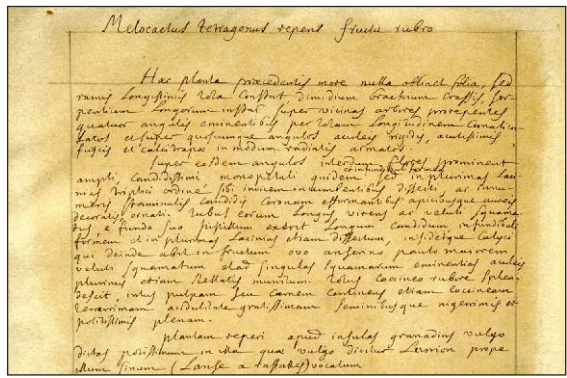 Melocactus tetragonus repens fructu rubro
Hac planta præcedentis more nulla obtinet folia, sed
ramis Longissimis tota Constat dimidium brachium crassis, Ser-
pentium Longorum instar super vicinas arbores prorepentes
quatuor angulis eminentibus per totam Longitudinem
et super quosumque angulos aculeis rigidis, acutissimis
fuscis et in modum radiatis armatos.
Super eosdem angulos interdum flores prominent
ampli, Candidissimi monopetali quidem sed in plurimas Laci-
nias triplici ordine sibi invicem incumbentibus dissecti, ac innu-
meris staminulis candidis Coronam efformantibus apicibusque aureis
decoratis, ornati. tubus eorum Longus, virens ac veluti squama-
tus, e fundo suo pistillum exerit Longum candidum infundibuli
formem et in plurimas Lacinias etiam dissectum, insidetque Calyci
qui deinde abit in fructum ovo anserino paulo maiorem
veluti squamatum et ad singulas squamarum eminentias aculeis
plurimis etiam stellatis munitum. totus coccineo rubore splen-
descit, intus pulpam seu carnem continens etiam coccineam
tenerrimam aciditate gratissimam seminibusque nigerrimis et
politissimis plenam.
plantam reperi apud insulas granadinis vulgo
dictas potissimum in illa quæ vulgo dicitur prope
illum sinum (Lanse a ) vocatum